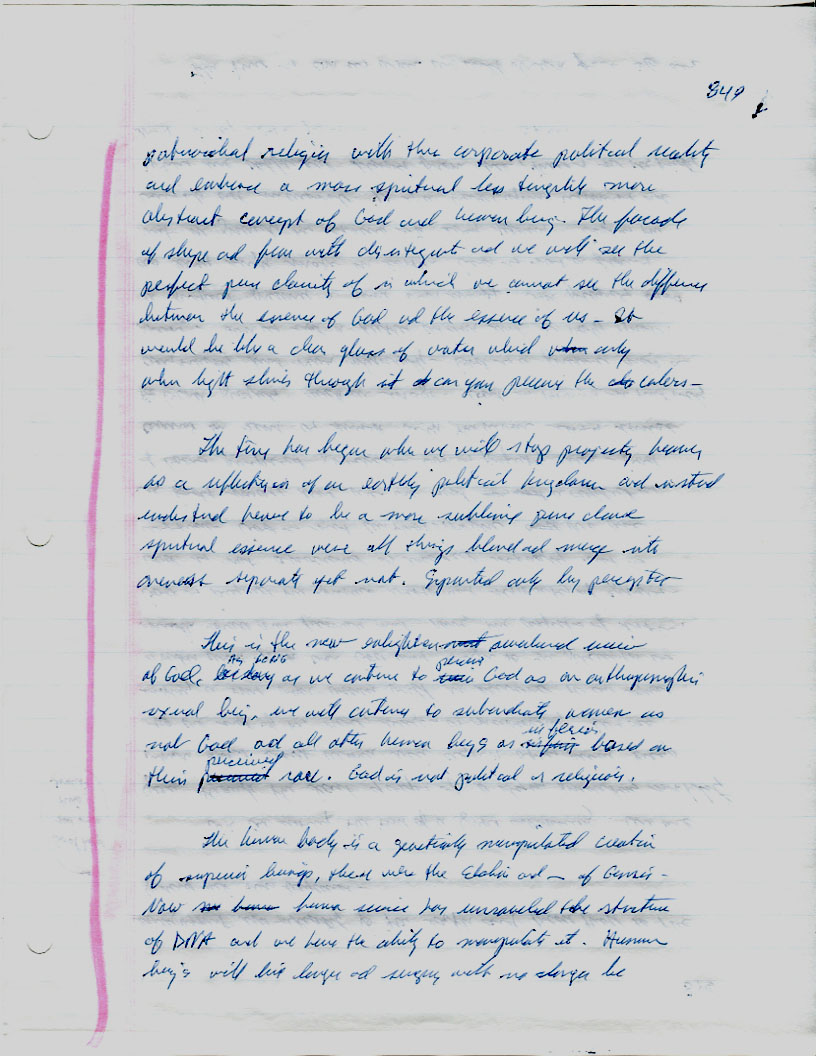 349
patriarchal religion with the corporate political reality
and embrace a more spiritual less tangible more
abstract concept of God and human being. The facade
of shape ad form with disintegrat ad we will see the
perfect pure clarity of in which we cannot see the difference
between the essence of God ad the essence of us - It
would be like a clear glass of water which only
when light shines through it can you perceive the colors -
The time has began when we will stop projecting heaven
as a reflection of an earthly political kingdom and instead
understand heaven to be a more sublime pure
spiritual essence were all things blend ad merge into
oneness separate yet not. only by perception
This is the new enlighten
of God, As long as we continue to perceive God as an anthropomorphic
sexual being, we will continue to subordinate women as
not God ad all other human beings as inferior based on
their perceived race. God is not political or religious.
The human body is a genetically manipulated creation
of superior beings, these were the Elohim ad - of Genesis -
Now human science has unraveled the structure
of DNA and we have the ability to manipulate it. Human
beings will live longer ad surgery with no longer be